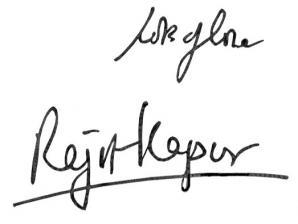 Lots of love
Rajit Kapur